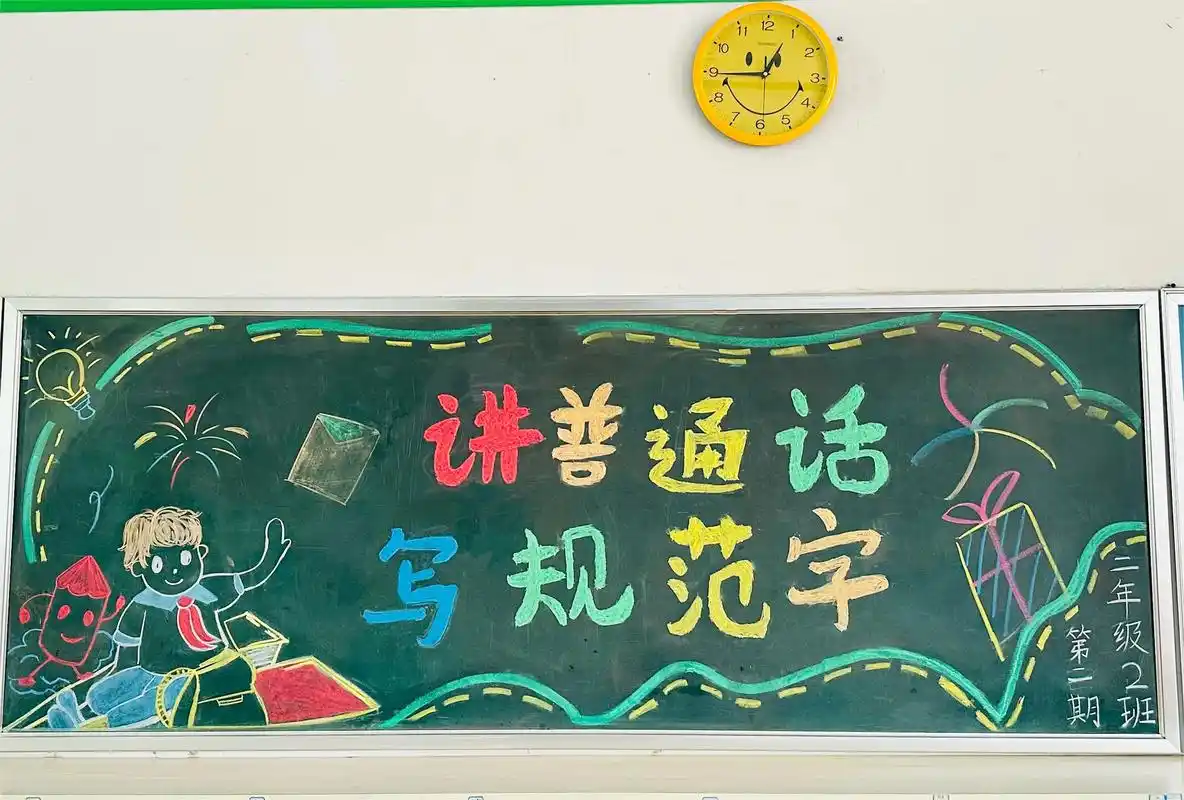 12
1
2
3
4
5
6
7
8
9
10
11
讲普通话
写规范字
二年级2班
第二期